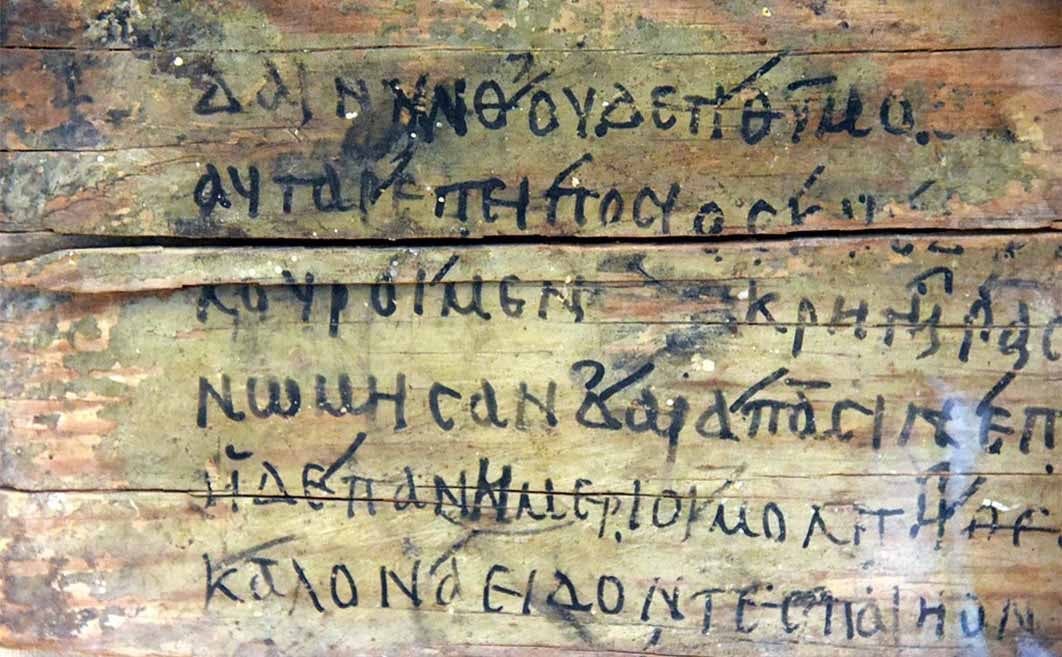 δαινυνθουδετιθυμο
αυταρεπειποσιοσκ
κουροιμεν κρητηρασ
νωμησανδαραπασινεπ
ηδεπανημεριοιμολπηθε
καλοναειδοντεσπαιηον